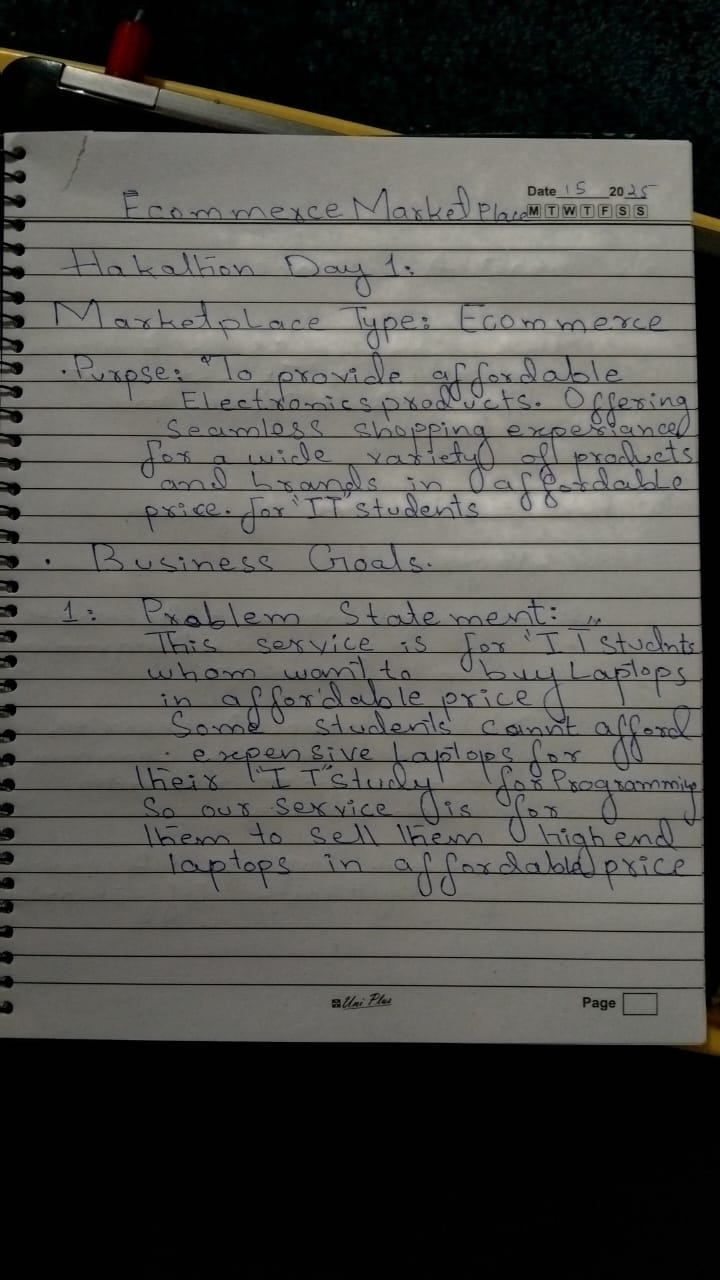 Date 15 2025
Ecommerce Market Place M T W T F S S
Hakalthon Day 1:
Marketplace Type: Ecommerce
· Purpse: "To provide affordable
Electronics products. Offering
Seamless shopping experiance
for a wide variety of products
and brands in affordable
price. for "IT" students
· Business Goals.
1: Problem Statement:
This service is for "IT" studnts
whom want to buy Laptops
in affordable price
Some students cannt afford
expensive Laptops for
their "IT" study for Programming
So our service is for
them to sell them high end
laptops in affordable price
Uni Plus
Page